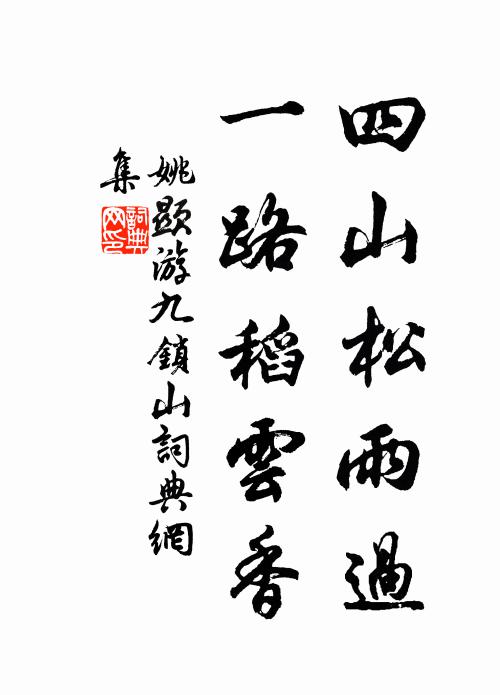 四山松雨過
一路稻雲香
姚顕游九鎖山詞典網
集
詞典網印